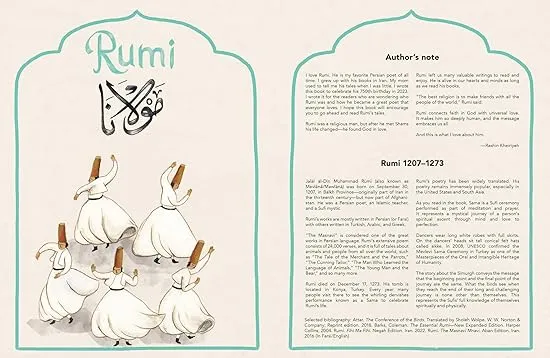 Rumi
مولانا
Author's note
I love Rumi. He is my favorite Persian poet of all
time. I grew up with his books in Iran. My mom
used to tell me his tales when I was little. I wrote
this book to celebrate his 750th birthday in 2023.
I wrote it for the readers who are wondering who
Rumi was and how he became a great poet that
everyone loves. I hope this book will encourage
you to go ahead and read Rumi's tales.
Rumi was a religious man, but after he met Shams
his life changed—he found God in love.
Rumi left us many valuable writings to read and
enjoy. He is alive in our hearts and minds as long
as we read his books.
"The best religion is to make friends with all the
people of the world," Rumi said.
Rumi connects faith in God with universal love.
It makes him so deeply human, and the message
embraces us all.
And this is what I love about him.
—Rashin Kheiriyeh
Rumi 1207–1273
Jalāl al-Dīn Muhammad Rumi (also known as
Mevlânâ/Mawlānā) was born on September 30,
1207, in Balkh Province—originally part of Iran in
the thirteenth century—but now part of Afghani-
stan. He was a Persian poet, an Islamic teacher,
and a Sufi mystic.
Rumi's works are mostly written in Persian (or Farsi),
with others written in Turkish, Arabic, and Greek.
"The Masnavi" is considered one of the great
works in Persian language. Rumi's extensive poem
consists of 24,000 verses, and it is full of tales about
animals and people from all over the world, such
as "The Tale of the Merchant and the Parrots,"
"The Cunning Tailor," "The Man Who Learned the
Language of Animals," "The Young Man and the
Bear," and so many more.
Rumi died on December 17, 1273. His tomb is
located in Konya, Turkey. Every year many
people visit there to see the whirling dervishes
performance known as a Sama to celebrate
Rumi's life.
Rumi's poetry has been widely translated. His
poetry remains immensely popular, especially in
the United States and South Asia.
As you read in the book, Sama is a Sufi ceremony
performed as part of meditation and prayer.
It represents a mystical journey of a person's
spiritual ascent through mind and love to
perfection.
Dancers wear long white robes with full skirts.
On the dancers' heads sit tall conical felt hats
called sikke. In 2008, UNESCO confirmed the
Mevlevi Sama Ceremony in Turkey as one of the
Masterpieces of the Oral and Intangible Heritage
of Humanity.
The story about the Simurgh conveys the message
that the beginning point and the final point of the
journey are the same. What the birds see when
they reach the end of their long and challenging
journey is none other than themselves. This
represents the Sufis' full knowledge of themselves
spiritually and physically.
Selected bibliography: Attar. The Conference of the Birds. Translated by Sholeh Wolpé. W. W. Norton &
Company; Reprint edition, 2018. Barks, Coleman. The Essential Rumi—New Expanded Edition. Harper
Collins, 2004. Rumi. Fihi Ma Fihi. Negah Edition. Iran, 2022. Rumi. The Masnavi Mnavi. Aban Edition. Iran,
2016 (In Farsi/English)